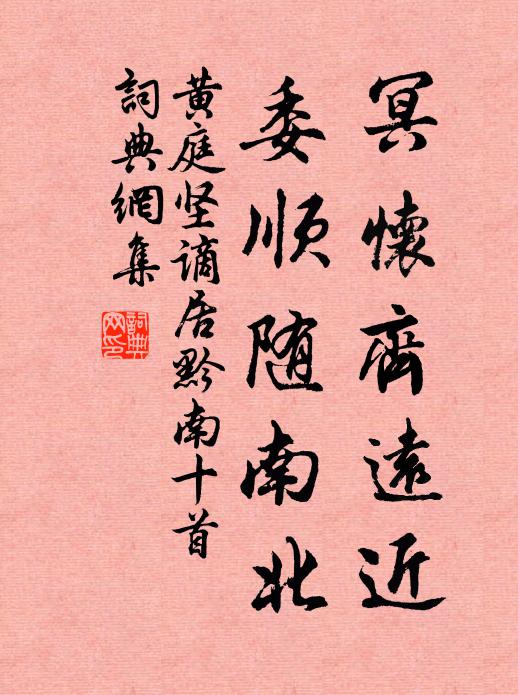 冥懷齊遠近
委順随南北
黄庭坚謫居黔南十首
詞典網集
詞典網印